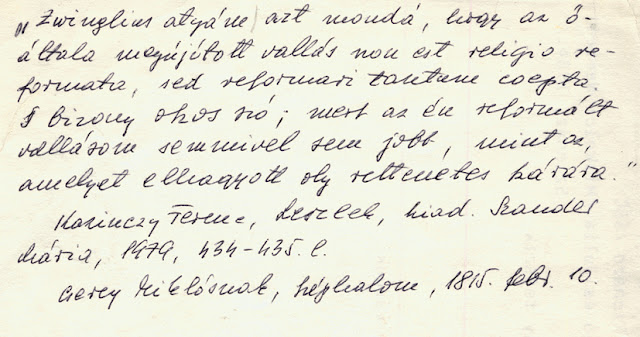 „Zwinglius atyánk azt mondá, hogy az ő-
általa megújított vallás non est religio re-
formata, sed reformari tantum coepta.
S bizony okos szó; mert az én reformált
vallásom semmivel sem jobb, mint az,
amelyet elhagyott oly rettenetes kárára."
Kazinczy Ferenc, Levelek, kiad. Szauder
Mária, 1979, 434-435. l.
Cserey Miklósnak, Széphalom, 1815. febr. 10.